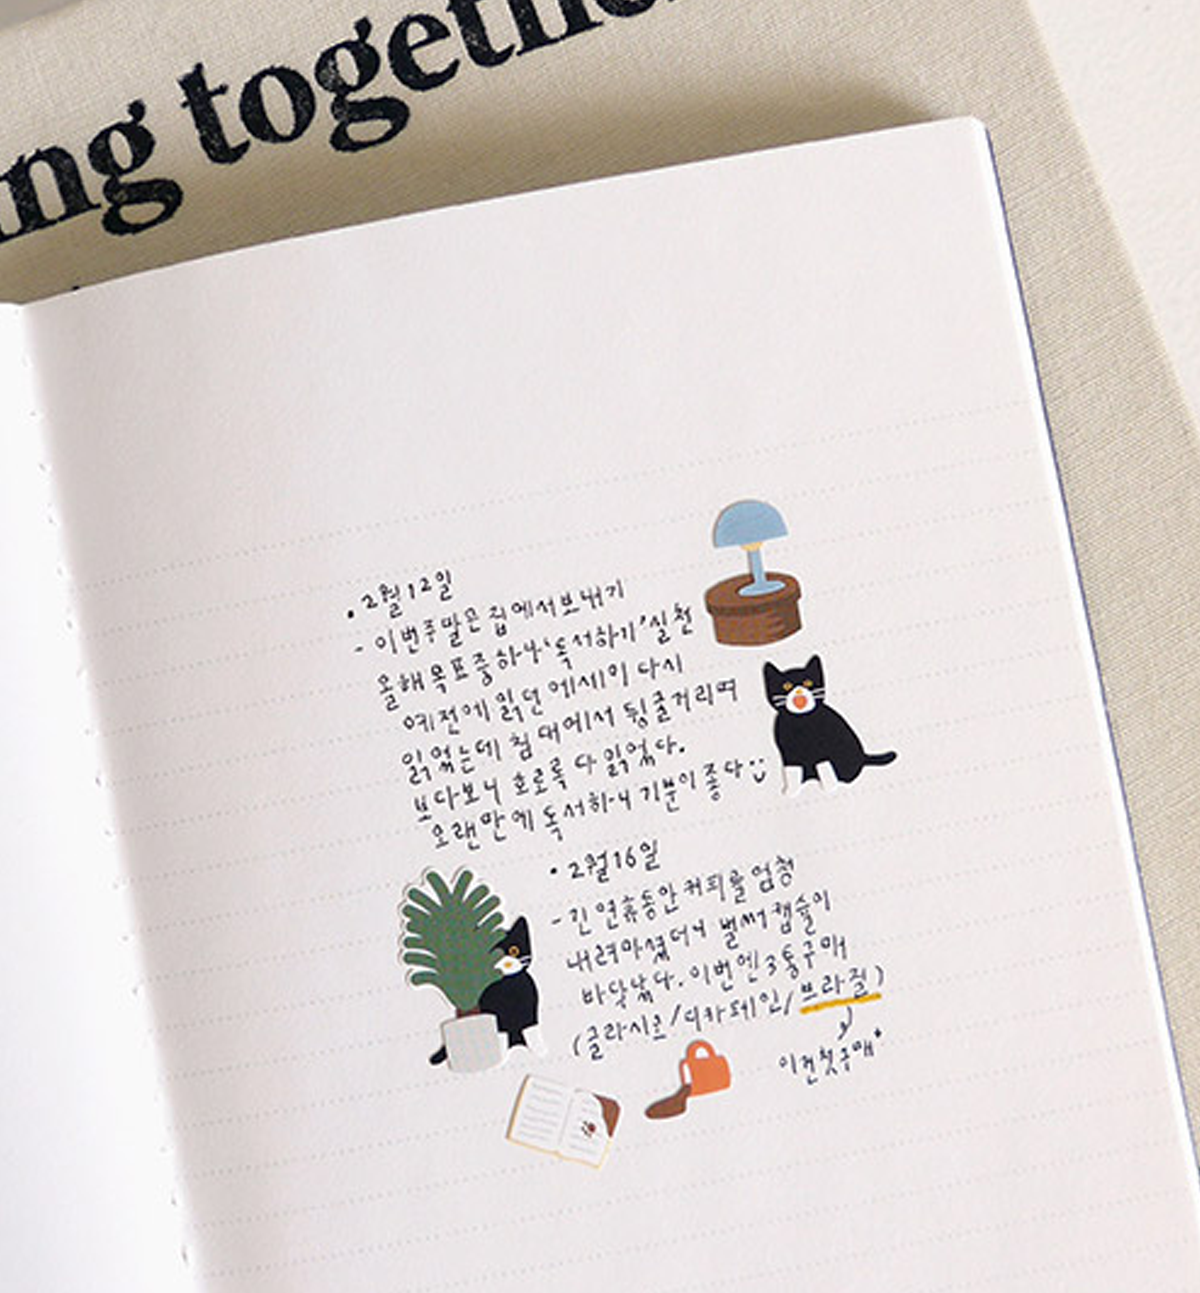 ng togethe
• 2월 12일
- 이번주말은 집에서보내기
올해목표중하나 '독서하기' 실천
예전에 읽던 에세이 다시
읽었는데 침대에서 뒹굴거리며
보다보니 호로록 다 읽었다.
오랜만에 독서하니 기분이 좋다 :)
• 2월 16일
- 긴 연휴동안 커피를 엄청
내려마셨더니 벌써 캡슐이
바닥났다. 이번엔 3통구매
(클라시코/디카페인/브라질)
이건첫구매*